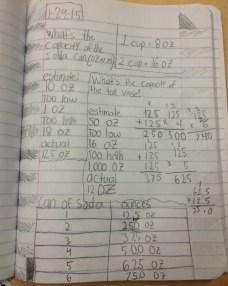 1-29-15
What's the
capacity of the
soda can(ounces)?
1 cup = 8 oz
2 cup = 16 oz
estimate
10 OZ
too low
1 OZ
too high
18 OZ
actual
12.5 OZ
What's the capacity of
the tall vase?
estimate
50 OZ
too low
16 OZ
too high
1,000 OZ
actual
125
+125
250
+125
375
125
x 4
500
125
x 5
625
Can of Soda
ounces
1
12.5 OZ
2
250 OZ
3
4
500 OZ
5
625 OZ
6
750 OZ